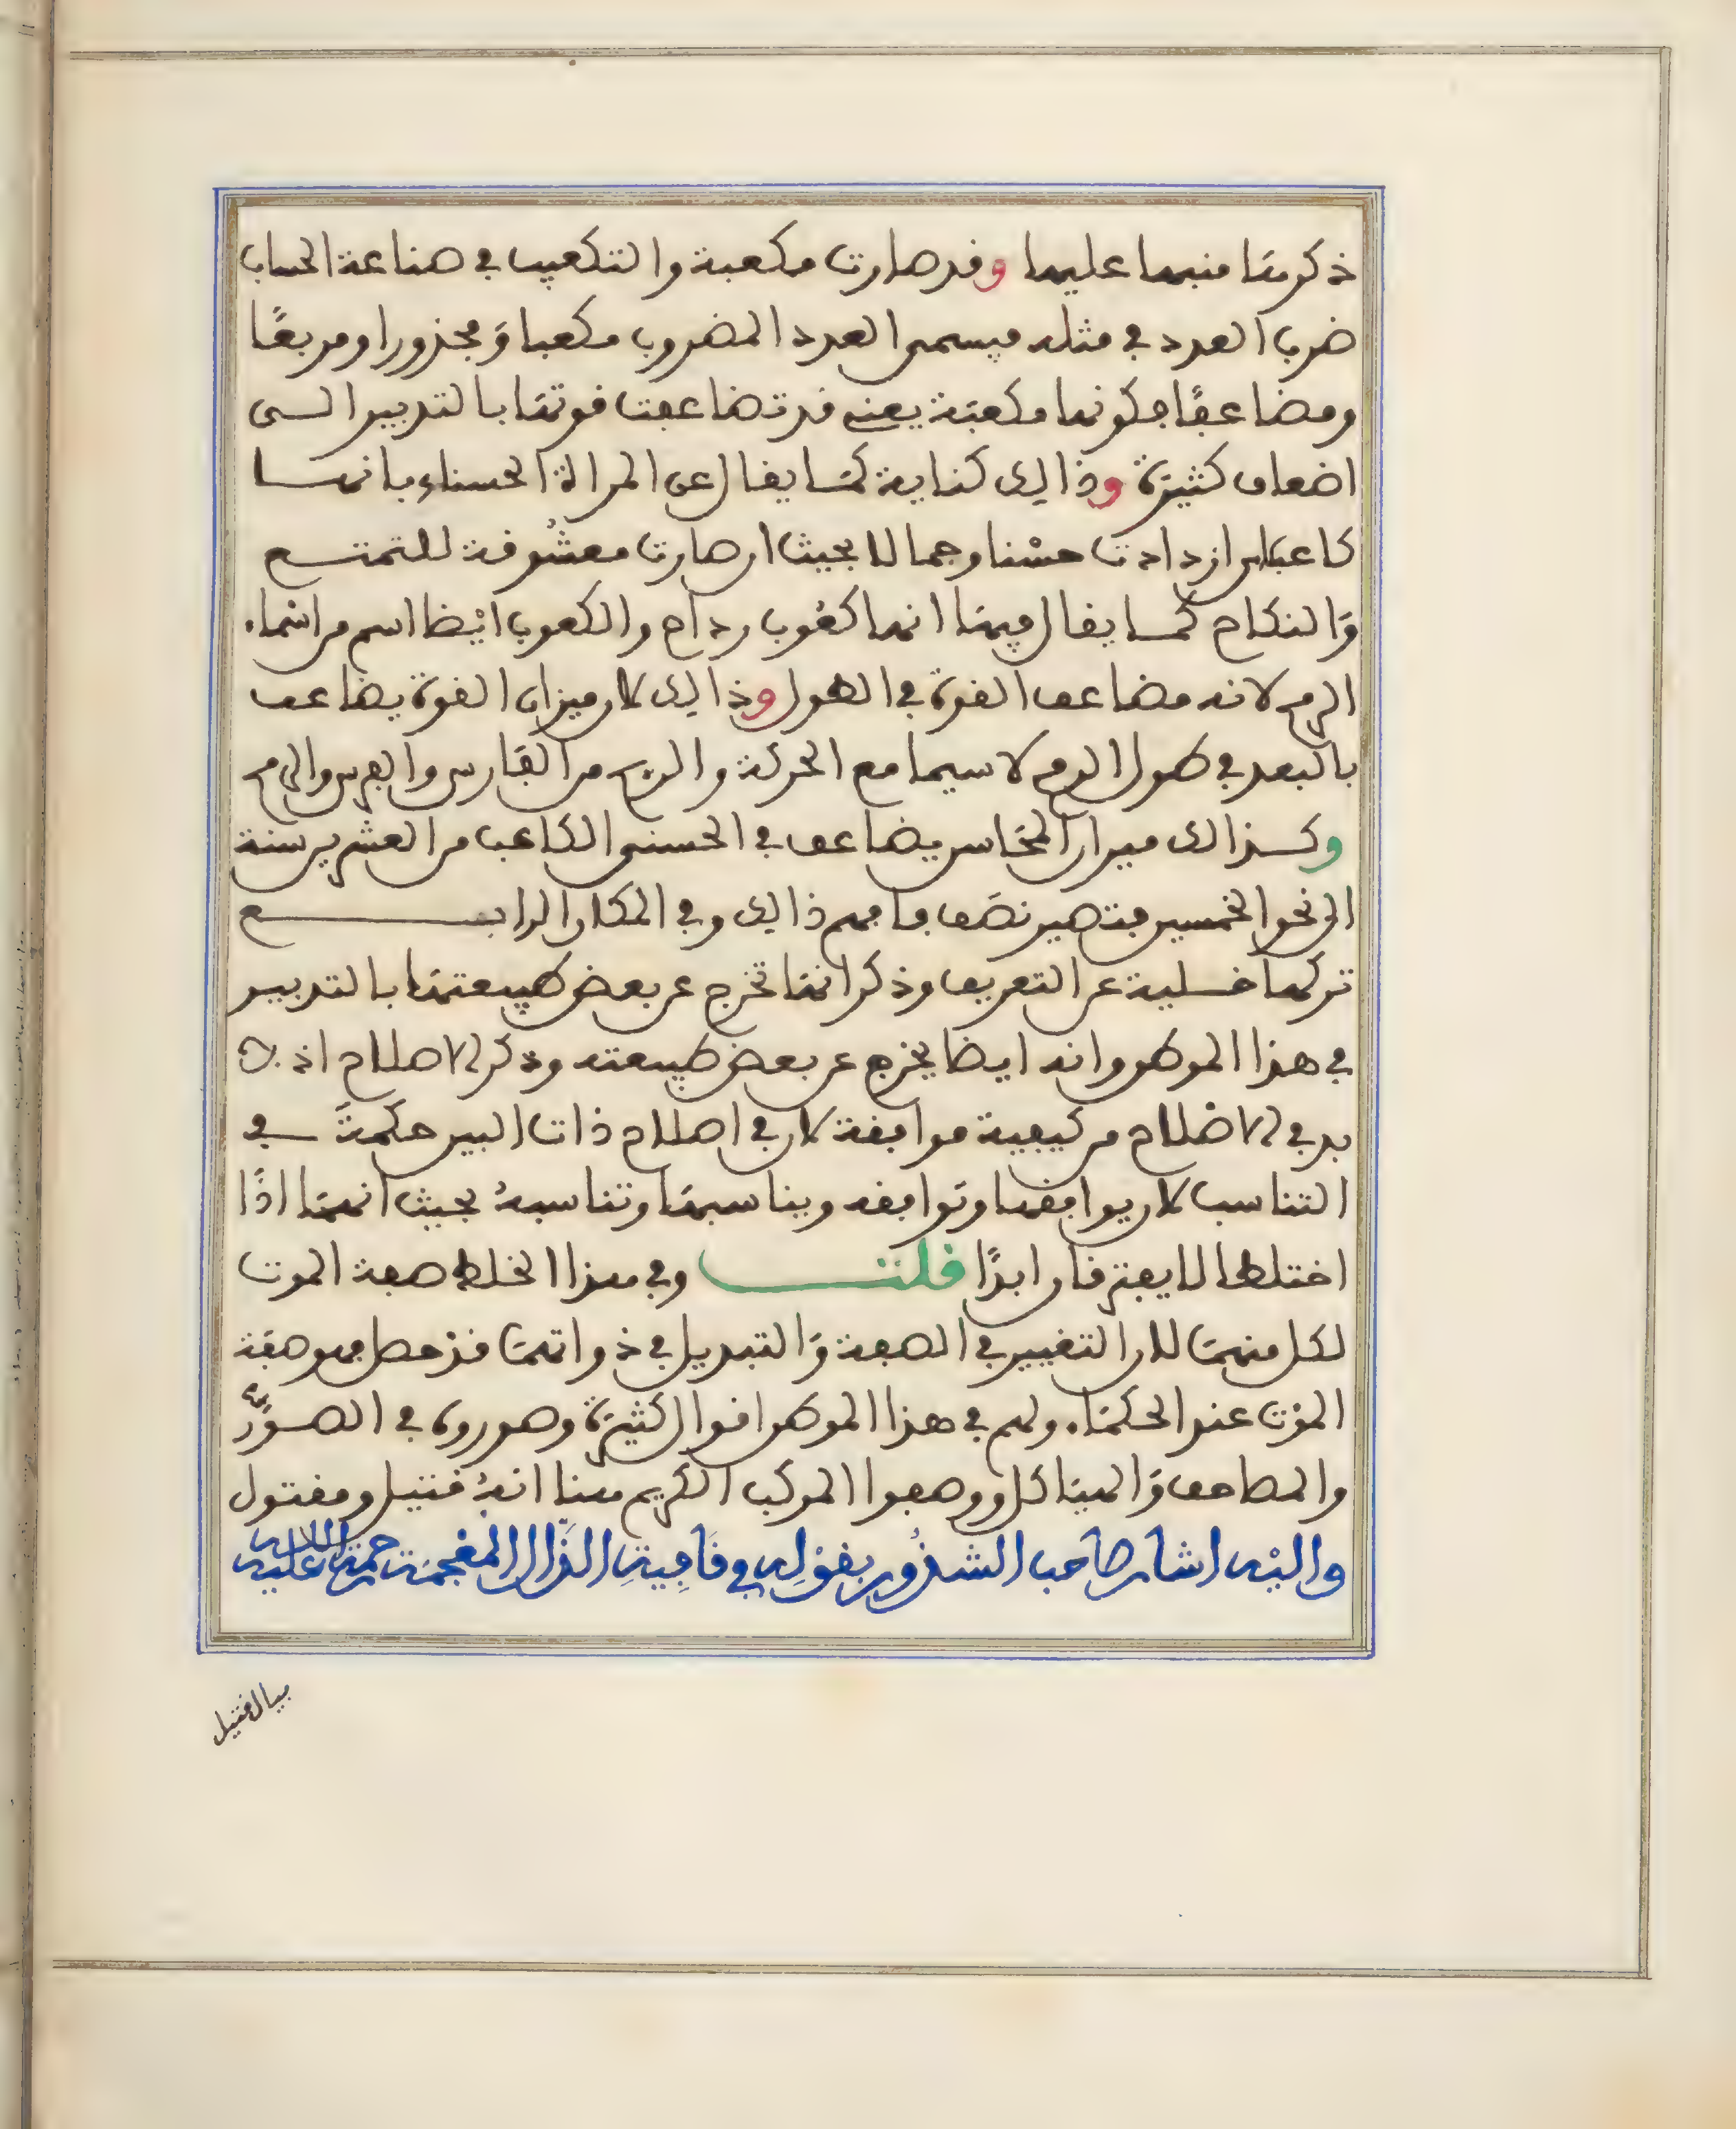 ذكرها منبها عليها وقد صارت مكعبة والتكعيب في صناعة الحساب
ضرب العدد في مثله فيسمى العدد المضروب مكعبا وَمجذورا ومربعًا
ومضاعفًا فكونها مكعبَة يعني قد تضاعفت قوتها بالتدبير الـى
اضعاف كثيرَة وذالك كناية كمَا يقال عن المراة الحسناء بانهـا
كاعبا اي ازدادت حسْنا وجمالا بحيث ان صارت معشُوقة للتمتـع
وَالنكاح كمـا يقال فيهَا انها كعُوب رداح والكعوب ايْضا اسم من اسْماء
الرمح لانه مضاعف القوة في الطول وذالك لان ميزان القوة يضاعف
بالبعد في طول الرمح لا سيما مع الحركة والريح من الفَارس والفرس والرمح
وكـذالك ميزان المحَاسن يضاعف في الحسن الكاعب من العشرين سنة
الى نحو الخمسين فتصير نصَف فافهم ذالك وفي المكان الرابـع
تركها خـلية عن التعريف وذكر انهَا تخرج عن بعض طبيعتهَا بالتدبير
في هذا الموطن وانه ايضا يخرج عن بعض طبيعته وذكر الاصلاح اذ لا
بد في الاصلاح من كيفية موافقة لان في اصلاح ذات البين حكمةً ـفي
التناسب لان يوافقها وتوافقه ويناسبهَا وتناسبهُ بحيث انهمَا اذًا
اختلطا لا يفترقان ابدًا قلتـ وفي هذا الخلط صفة الموت
لكل منهمَا لان التغيير في الصفة وَالتبديل في ذواتهمَا قد حصل فهو صفَة
الموْت عند الحكمَاء ولهم في هذا الموطن اقوال كثيرَة وصوروه في الصـوَر
والمصاحف وَالهيَاكل ووصفوا المركب الكريم هنا انهُ قتيل ومقتول
واليْه اشار صاحب الشذُور بقوْلِه في قَافِيةِ الذَّال المعْجمَة رحمة الله عليه
بيا لقتيل